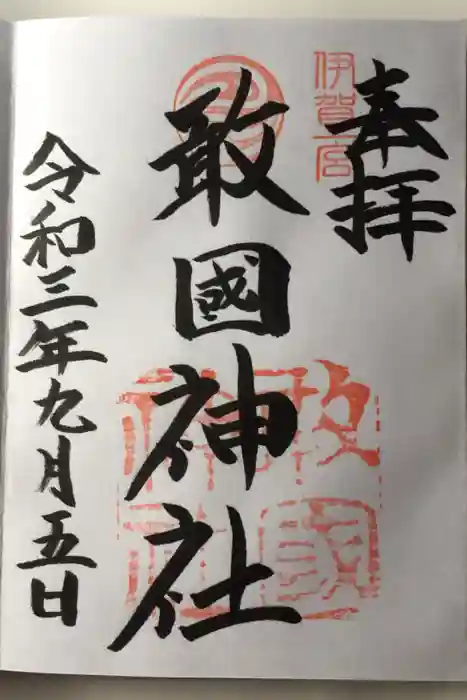 奉拝
伊賀一宮
敢國神社
令和三年九月五日
敢國
神社